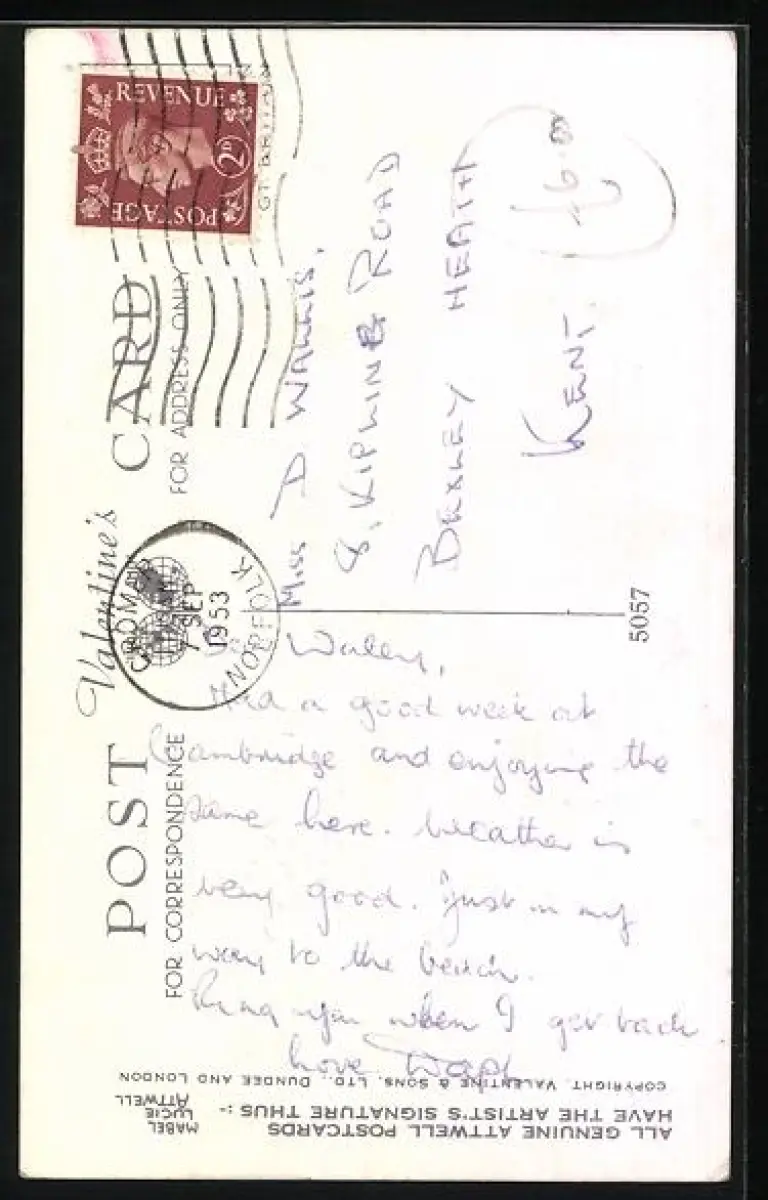 Valentine's
POST CARD
FOR CORRESPONDENCE
FOR ADDRESS ONLY
REVENUE
2D
POSTAGE
GT. BRITAIN
7 SEP
1953
NORFOLK
Had a good week at
Cambridge and enjoying the
same here. Weather is
very good. Just on my
way to the beach.
Ring you when I get back
Love
Miss D WALLIS,
8, KIPLING ROAD
BEXLEY HEATH
KENT.
5057
ALL GENUINE ATTWELL POSTCARDS
HAVE THE ARTIST'S SIGNATURE THUS :-
MABEL
LUCIE
ATTWELL
COPYRIGHT, VALENTINE & SONS, LTD., DUNDEE AND LONDON